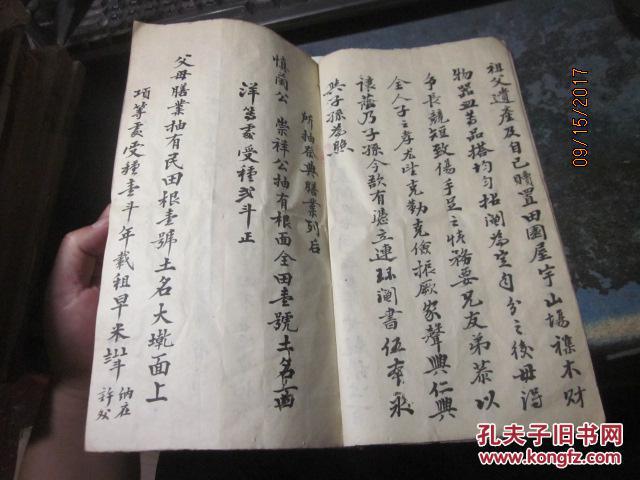 祖父遺產及自己贖置田園屋宇山塲襍木財
物器皿等品搭均勻拈鬮為定自分之後毋得
爭長競短致傷手足之情務要兄友弟恭以
全人子之孝尤望克勤克儉振厥家聲興仁興
讓蔭乃子孫今欲有憑立連環鬮書伍本永
與子孫為照
所抽蒸典膳業列后
慎蘭公 崇祥公抽有根面全田壹號土名
洋等處受種弍斗正
父母膳業抽有民田根壹號土名大墘面上
項等處受種壹斗年載租早米 斗 納在
許
09/15/2017
孔夫子旧书网